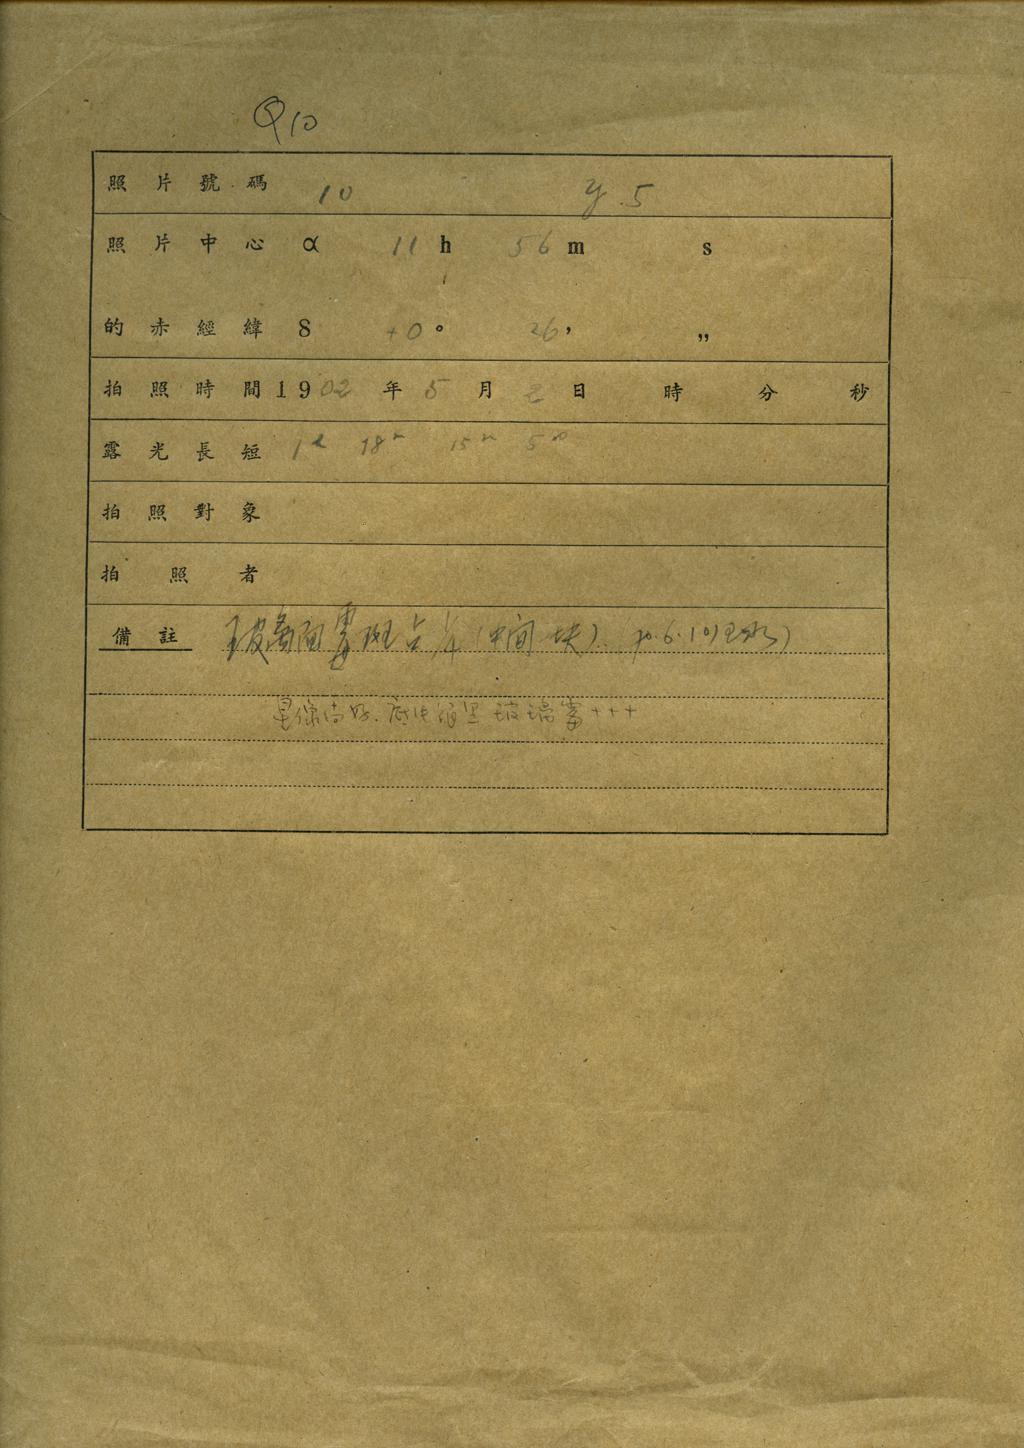 Q10
照片號碼 10 y.5
照片中心 α 11 h 56 m s
的赤經緯 δ +0° 26' "
拍照時間 1902年5月2日 時 分 秒
露光長短 1h 18m 15m 5m
拍照對象
拍照者
備註 玻璃面霉斑占 (中间一块). 70.6.10
星像尚好. 玻璃霉+++